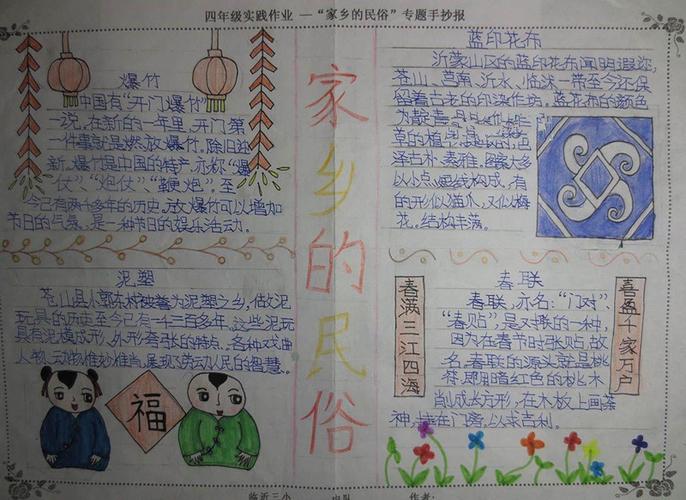 四年级实践作业 —“家乡的民俗”专题手抄报
家乡的民俗
爆竹
中国有“开门爆竹”
一说,在新的一年里,开门第
一件事就是燃放爆竹,除旧迎
新。爆竹是中国的特产,亦称“爆
仗”,“炮仗”,“鞭炮”,至
今已有两千多年的历史,放爆竹可以增加
节日的气氛,是一种节日的娱乐活动。
蓝印花布
沂蒙山区的蓝印花布闻明遐迩,
苍山、莒南、沂水、临沭一带至今还保
留着古老的印染作坊,蓝花布的颜色
为靛蓝,
草的植
泽古朴、素雅,图案大多
以小点、短线构成,有
的形似猫爪,又似梅
花。结构丰满。
泥塑
苍山县小郭东村被誉为泥塑之乡,做泥
玩具的历史至今已有一千三百多年,这些泥玩
具有泥模成形、外形夸张的特点,各种戏曲
人物、动物惟妙惟肖,展现了劳动人民的智慧。
福
春联
春联,亦名:“门对”、
“春贴”,是对联的一种,
因为在春节时张贴,故
名。春联的源头就是桃
符,即用暗红色的桃木
削成长方形,在木板上画荼
神,挂在门旁,以求吉利。
春满三江四海
喜盈千家万户
临沂三小 中队 作者: